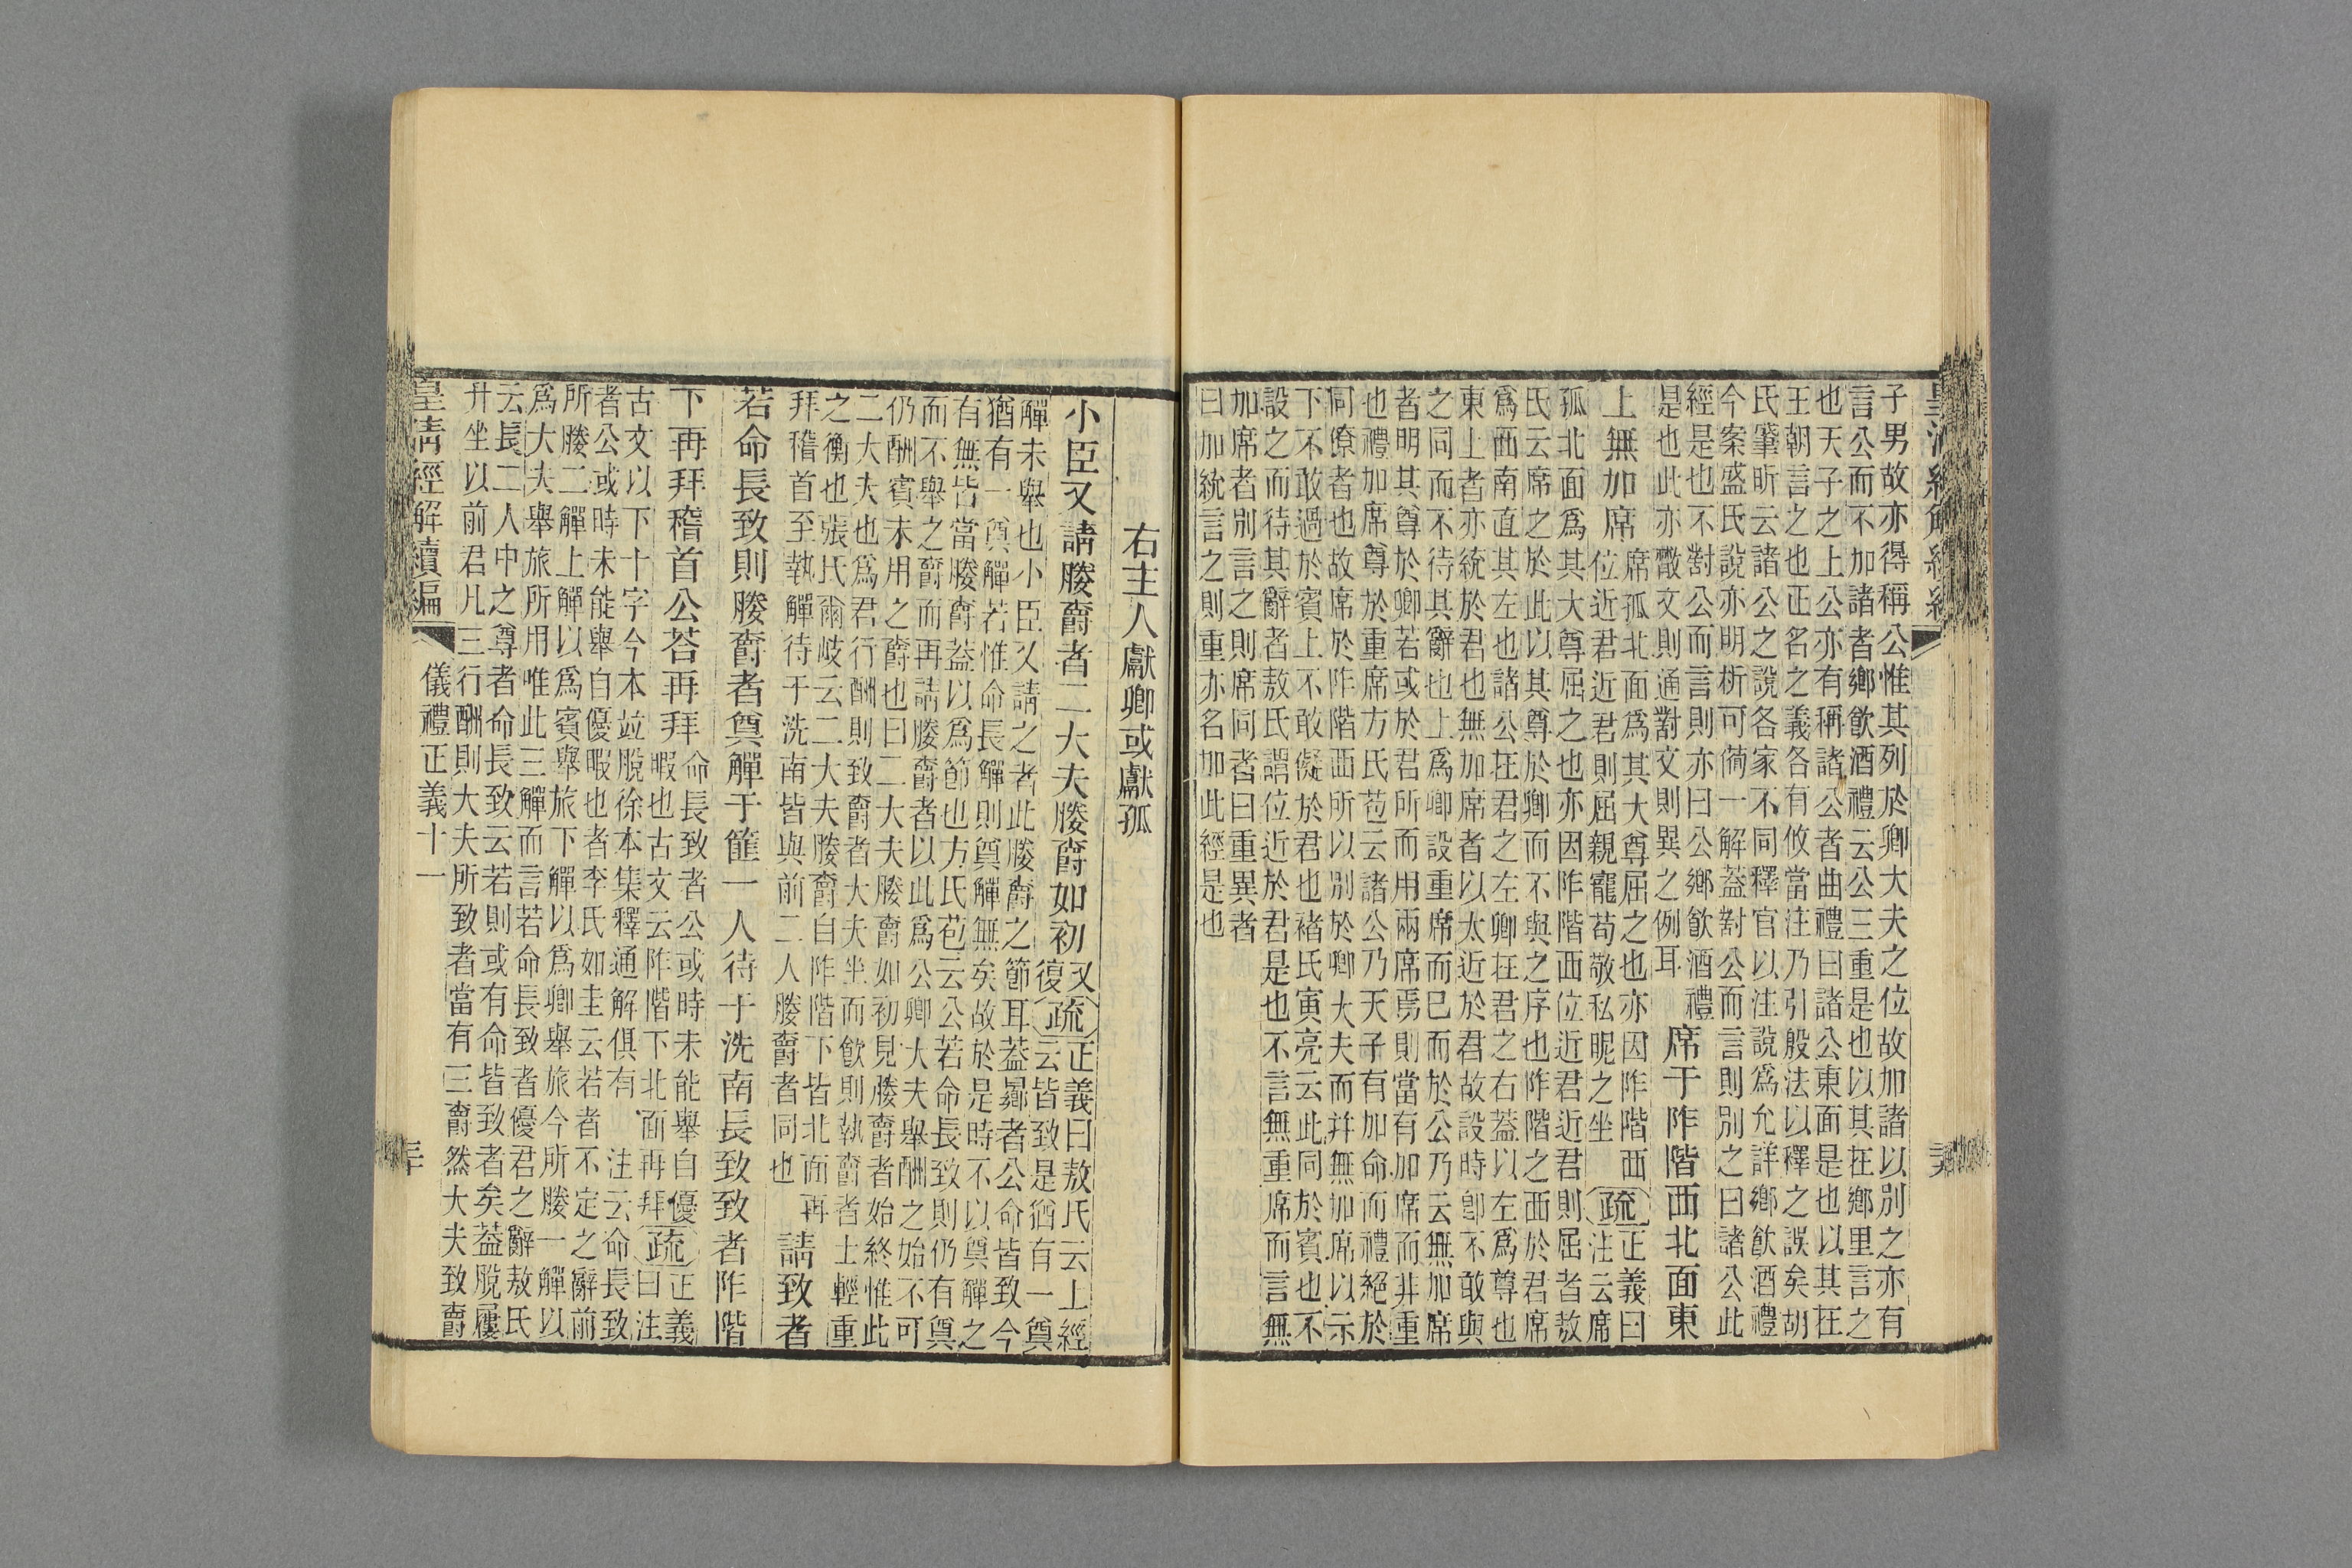 皇清經解續編
子男故亦得稱公惟其列於卿大夫之位故加諸以別之亦有
言公而不加諸者鄉飮酒禮云公三重是也以其在鄉里言之
也天子之上公亦有稱諸公者曲禮曰諸公東面是也以其在
王朝言之也正名之義各有攸當注乃引殷法以釋之誤矣胡
氏肇昕云諸公之說各家不同釋官以注說爲允詳鄉飮酒禮
今案盛氏說亦明析可備一解蓋對公而言則別之曰諸公此
經是也不對公而言則亦曰公鄉飮酒禮
是也此亦散文則通對文則異之例耳
席于阼階西北面東
上無加席
席孤北面爲其大尊屈之也亦因阼階西
位近君近君則屈親寵苟敬私昵之坐
疏
正義曰
注云席
孤北面爲其大尊屈之也亦因阼階西位近君近君則屈者敖
氏云席之於此以其尊於卿而不與之序也阼階之西於君席
爲西南直其左也諸公在君之左卿在君之右蓋以左爲尊也
東上者亦統於君也無加席者以太近於君故設時卽不敢與
之同而不待其辭也上爲卿設重席而已而於公乃云無加席
者明其尊於卿若或於君所而用兩席焉則當有加席而非重
也禮加席尊於重席方氏苞云諸公乃天子有加命而禮絕於
同僚者也故席於阼階西所以別於卿大夫而幷無加席以示
下不敢過於賓上不敢儗於君也褚氏寅亮云此同於賓也不
設之而待其辭者敖氏謂位近於君是也不言無重席而言無
加席者別言之則席同者曰重異者
曰加統言之則重亦名加此經是也
右主人獻卿或獻孤
小臣又請媵爵者二大夫媵爵如初
又
復
疏
正義曰敖氏云上經
云皆致是猶有一奠
觶未舉也小臣又請之者此媵爵之節耳蓋曏者公命皆致今
猶有一奠觶若惟命長觶則奠觶無矣故於是時不以奠觶之
有無皆當媵爵蓋以爲節也方氏苞云公若命長致則仍有奠
而不舉之爵而再請媵爵者以此爲公卿大夫舉酬之始不可
仍酬賓未用之爵也曰二大夫媵爵如初見媵爵者始終惟此
二大夫也爲君行酬則致爵者大夫坐而飮則執爵者士輕重
之衡也張氏爾岐云二大夫媵爵自阼階下皆北面再
拜稽首至執觶待于洗南皆與前二人媵爵者同也
請致者
若命長致則媵爵者奠觶于篚一人待于洗南長致致者阼階
下再拜稽首公荅再拜
命長致者公或時未能舉自優
暇也古文云阼階下北面再拜
疏
正義
曰注
古文以下十字今本竝脫徐本集釋通解俱有注云命長致
者公或時未能舉自優暇也者李氏如圭云若者不定之辭前
所媵二觶上觶以爲賓舉旅下觶以爲卿舉旅今所媵一觶以
爲大夫舉旅所用唯此三觶而言若命長致者優君之辭敖氏
云長二人中之尊者命長致云若則或有命皆致者矣蓋脫屨
升坐以前君凡三行酬則大夫所致者當有三爵然大夫致爵
皇清經解續編
儀禮正義十一